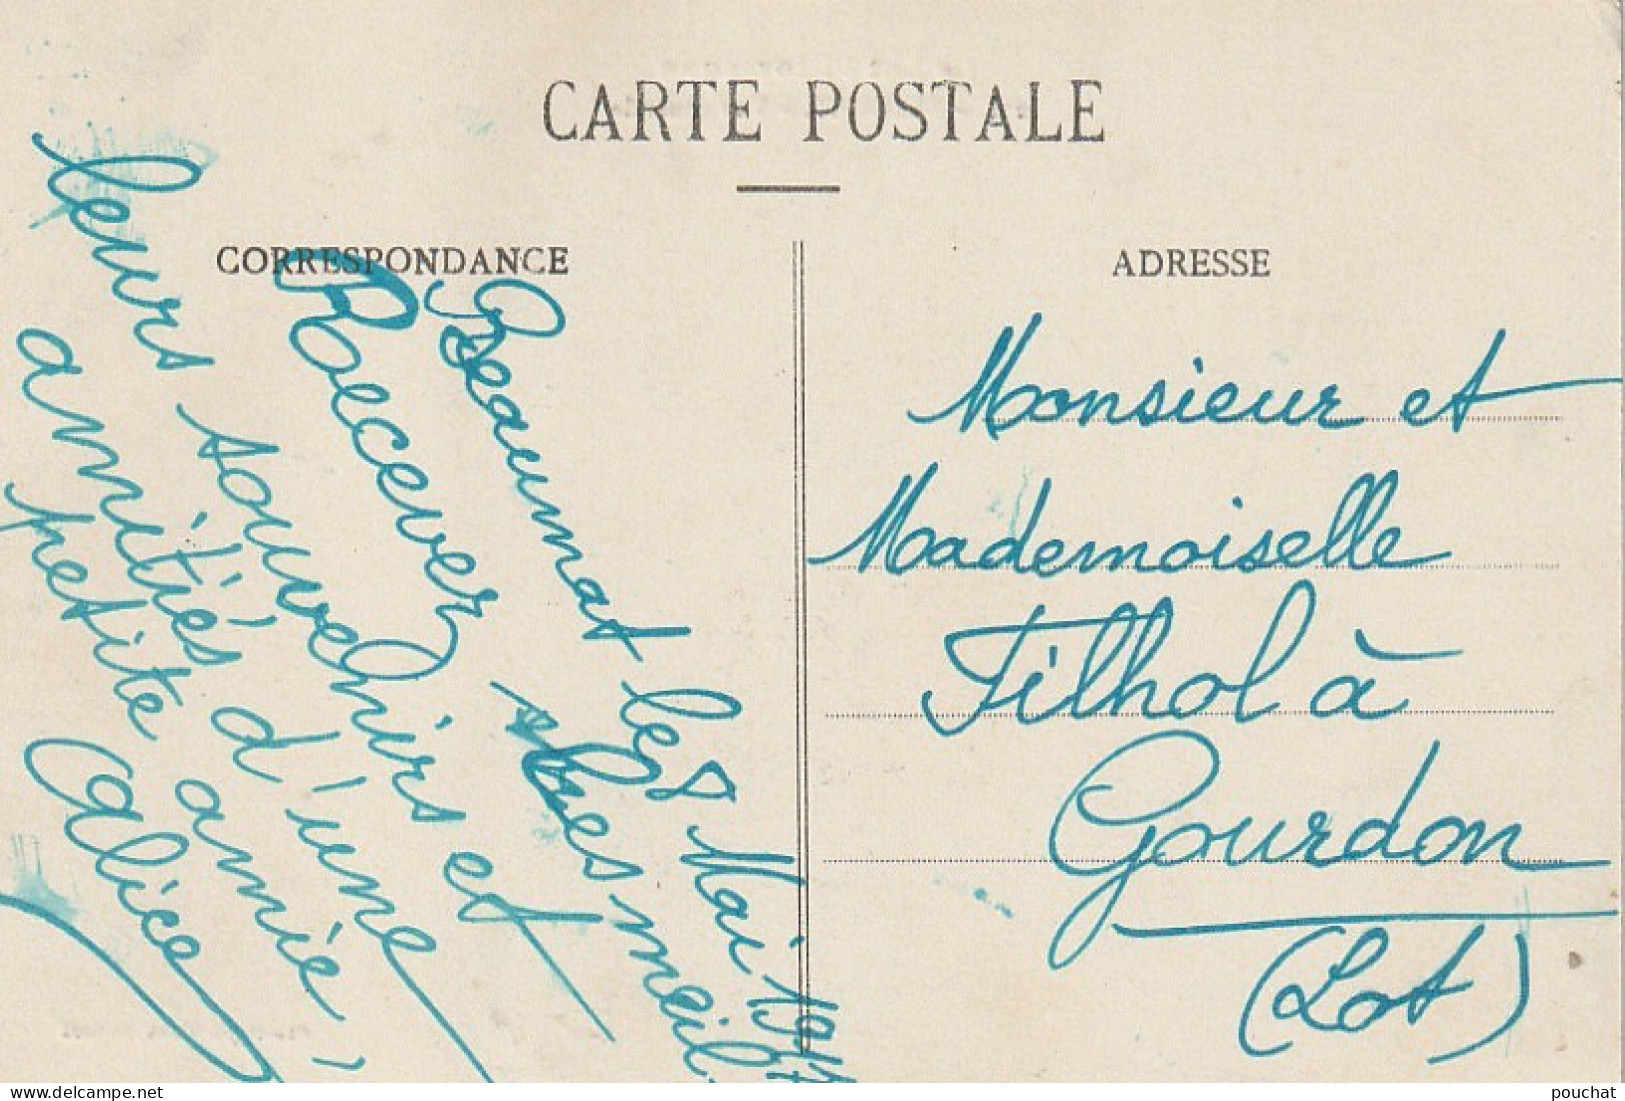 CARTE POSTALE
CORRESPONDANCE
ADRESSE
Beaumat le 8 Mai
Recever mes meil
leurs souvenirs et
amitiés d'une
petite amie,
Alice
Monsieur et
Mademoiselle
Filhol à
Gourdon
(Lot)
pouchat